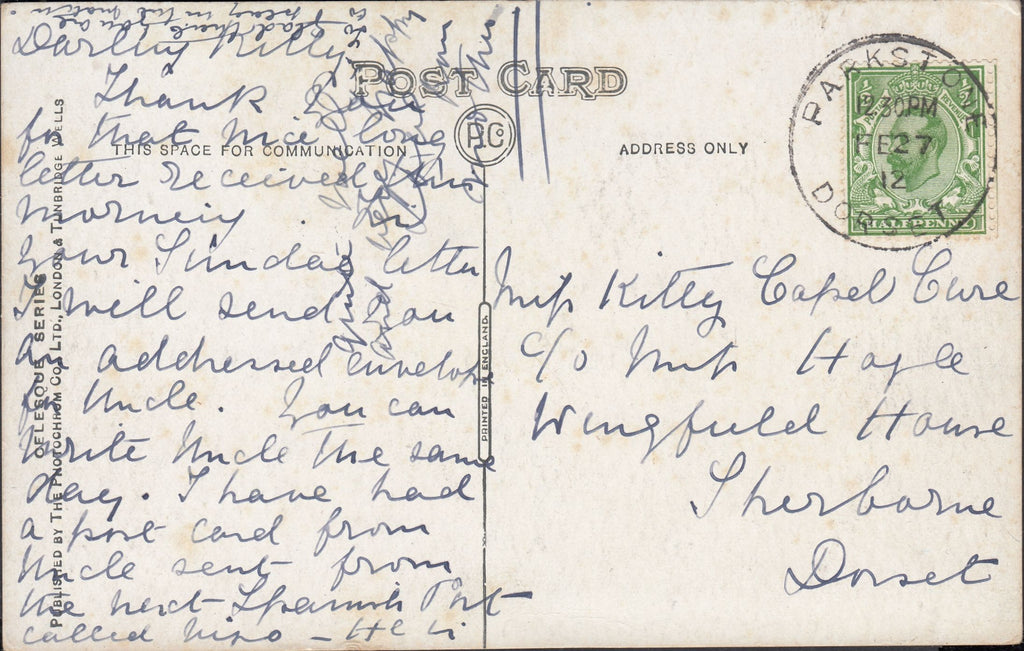 POST CARD
THIS SPACE FOR COMMUNICATION
ADDRESS ONLY
P.C. Co
Darling Kitty
Thank you
for that nice long
letter received this
morning. In
your Sunday letter
I will send you
an addressed envelope
for Uncle. You can
write Uncle the same
day. I have had
a post card from
Uncle sent from
the next Spanish Port
called Vigo - He is
glad there
you are
in the
PRINTED IN ENGLAND.
CELESQUE SERIES
PUBLISHED BY THE PHOTOCHROM CO. LTD., LONDON & TUNBRIDGE WELLS
Miss Kitty Capel Cure
c/o Miss Hayle
Wingfield House
Sherborne
Dorset
PARKSTONE
12.30PM
FE 27
12
DORSET
HALFPENNY